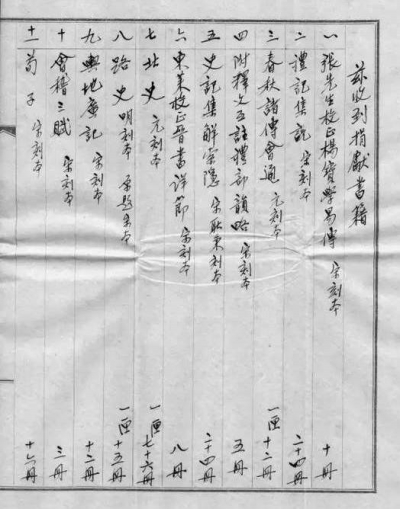 兹收到捐献書籍
一 張先生校正楊寶學易傳 宋刻本 十冊
二 禮記集說 宋刻本 二十四冊
三 春秋諸傳會通 元刻本 一匣十二冊
四 附釋文互註禮部韻略 宋刻本 五冊
五 史記集解索隱 宋耿秉刻本 二十四冊
六 東萊校正晉書詳節 宋刻本 八冊
七 北史 元刻本 一匣七十六冊
八 路史 明刻本 原題宋本 一匣十五冊
九 輿地廣記 宋刻本 十二冊
十 會稽三賦 宋刻本 三冊
十一 荀子 宋刻本 十六冊